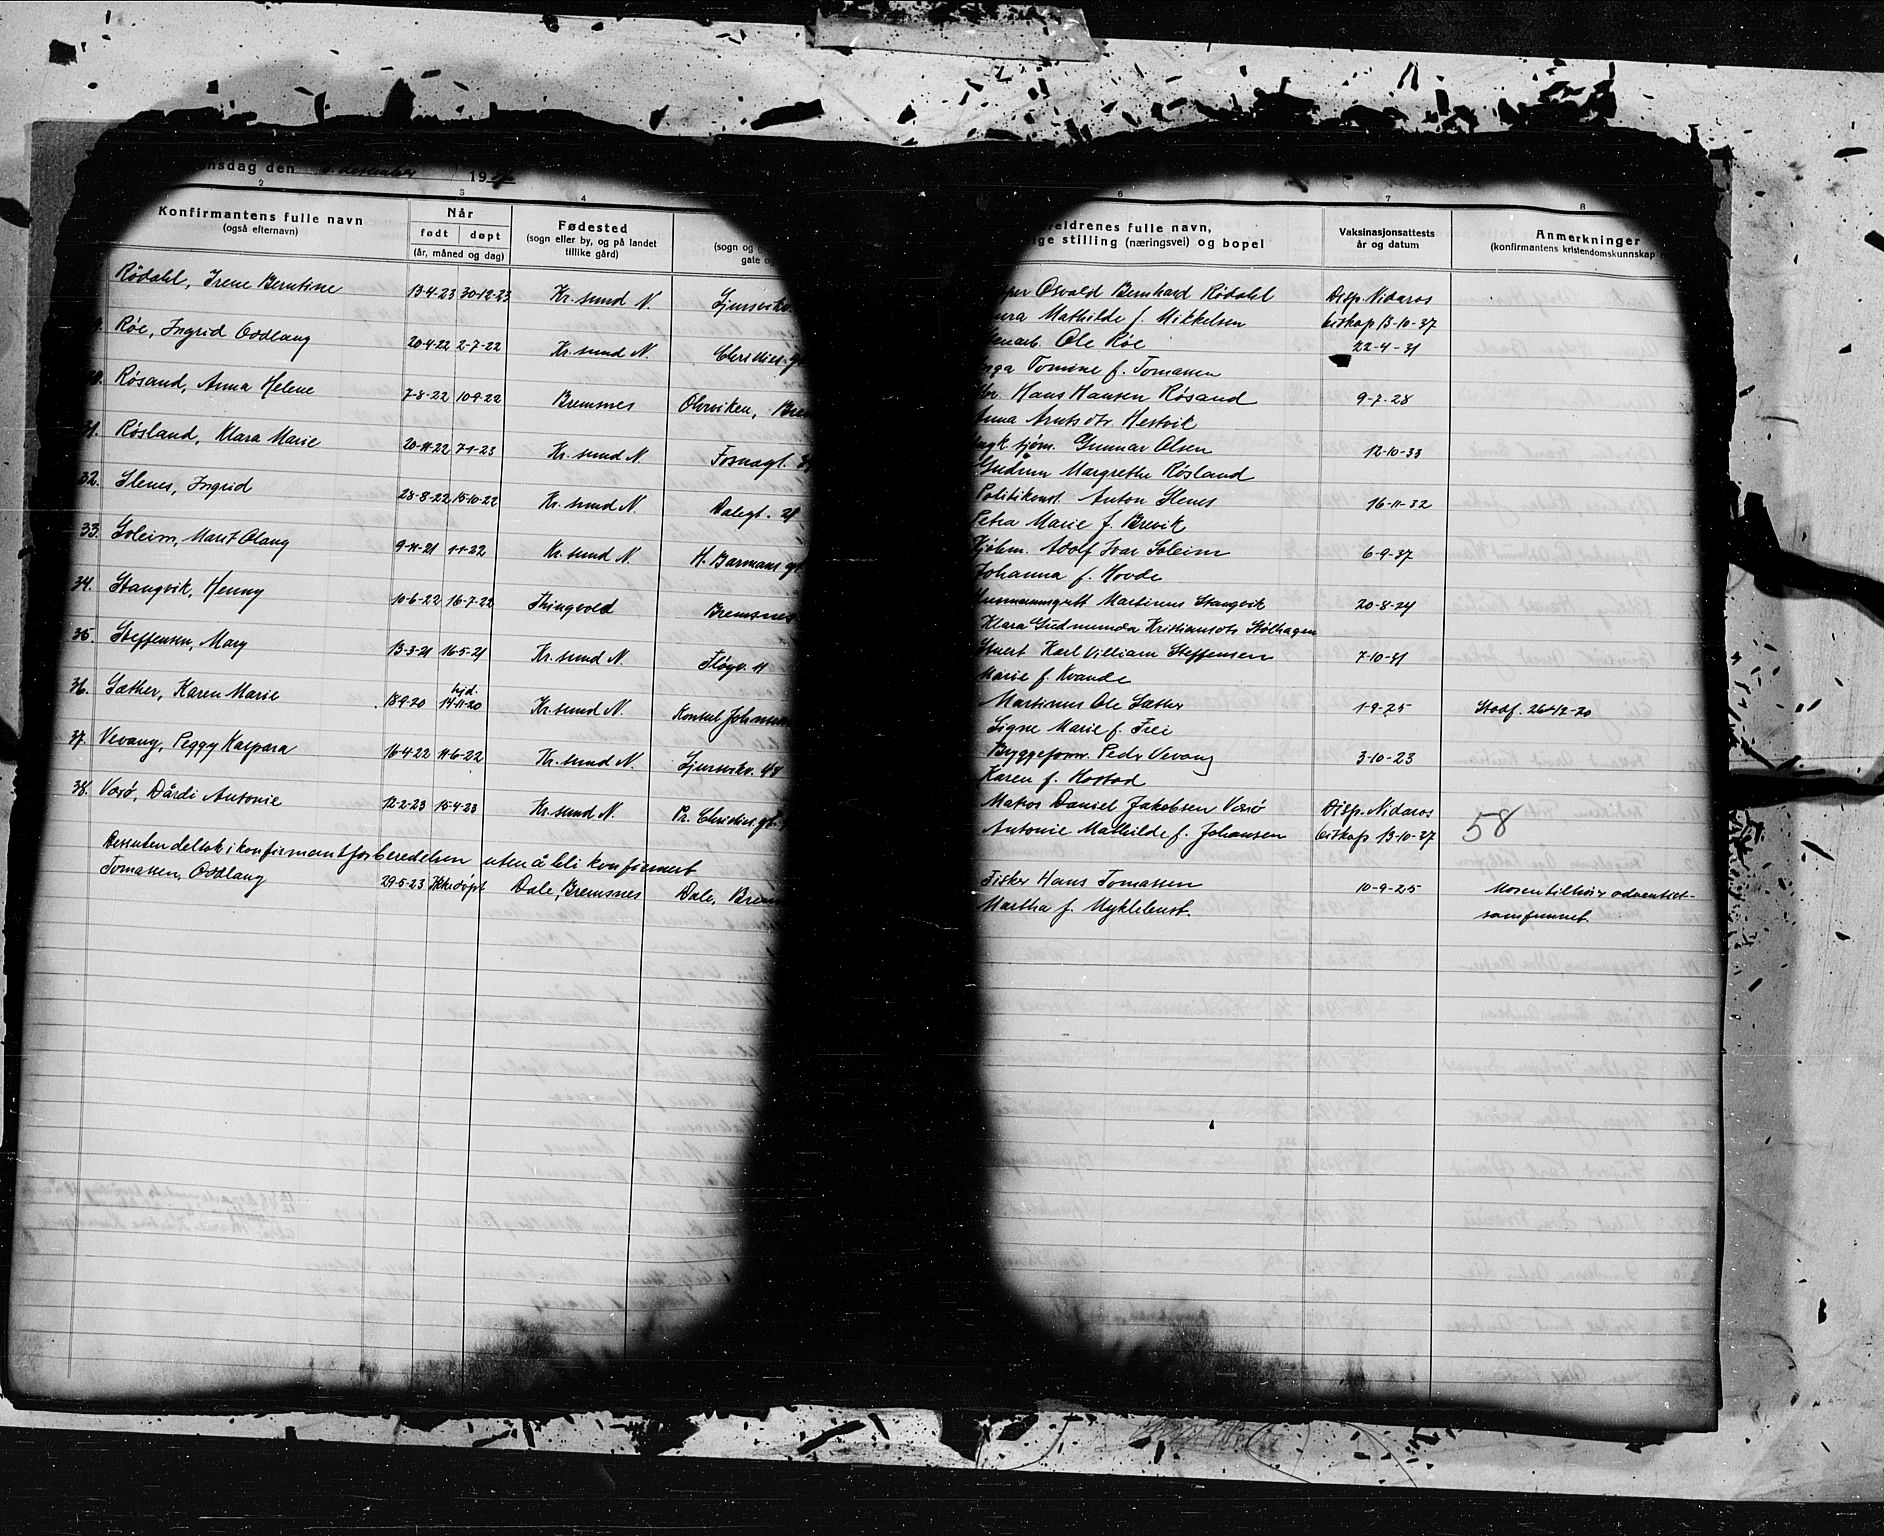 nsdag den 5. desember 19
2 3 4 6 7 8
Konfirmantens fulle navn (også efternavn) | Når født døpt (år, måned og dag) | Fødested (sogn eller by, og på landet tillike gård) | (sogn og gate o | reldrenes fulle navn, ge stilling (næringsvei) og bopel | Vaksinasjonsattests år og datum | Anmerkninger (konfirmantens kristendomskunnskap
Rødahl, Irene Berntine | 13-4-23 | 30-12-23 | Kr.sund N. | Osvald Bernhard Rødahl | Disp. Nidaros
Mathilde f. Mikkelsen | biskop 13-10-37
Røe, Ingrid Oddlaug | 20-4-22 | 2-7-22 | Kr.sund N. | Christies g | Ole Røe | 22-4-31
Inga Tomine f. Tomassen
Røsand, Anna Helene | 7-8-22 | 10-9-22 | Bremsnes | Bre | Hans Hansen Røsand | 9-7-28
Anna Arntsdtr Hestvik
31. Røsland, Klara Marie | 20-11-22 | 7-1-23 | Kr.sund N. | Fosnagt. | sjøm. Gunnar Olsen | 12-10-33
Gudrun Margrethe Røsland
32. Slenes, Ingrid | 28-8-22 | 15-10-22 | Kr.sund N. | Dalegt. 21 | Politikonst. Anton Slenes | 16-11-32
Petra Marie f. Brevik
33. Soleim, Marit Olaug | 9-11-21 | 1-1-22 | Kr.sund N. | H. Barmans gt. | Kjøbm. Adolf Ivar Soleim | 6-9-37
Johanna f. Hovde
34. Stangvik, Henny | 10-6-22 | 16-7-22 | Thingvold | Bremsnes | Martinus Stangvik | 20-8-24
Klara Gudmunda Kristiansdtr Stølhagen
35 Steffensen, Mary | 13-3-21 | 16-5-21 | Kr.sund N. | Fløyv. 11 | Stuert Karl William Steffensen | 7-10-31
Marie f. Kvande
36. Sæther, Karen Marie | 18-9-20 | hjd. 14-11-20 | Kr.sund N. | Konsul Johnsens | Martinus Ole Sæther | 1-9-25 | Stadf. 26-12-20
Signe Marie f. Frei
37. Vevang, Peggy Kaspara | 16-4-22 | 11-6-22 | Kr.sund N. | 48 | Byggeform. Peder Vevang | 3-10-23
Karen f. Kostad
38. Vorsø, Dårdi Antonie | 12-2-23 | 15-4-23 | Kr.sund N. | Pr. Christies gt. | Matros Daniel Jakobsen Vorsø | Disp. Nidaros
Antonie Mathilde f. Johansen | biskop 13-10-37 | 58
Dessuten deltok i konfirmantforberedelsen uten å bli konfirmert
Tomassen, Oddlaug | 29-5-23 | Ikke døpt | Dale, Bremsnes | Dale, Brem | Fisker Hans Tomassen | 10-9-25 | Moren tilhører adventist-
Martha f. Myklebust. | samfunnet.